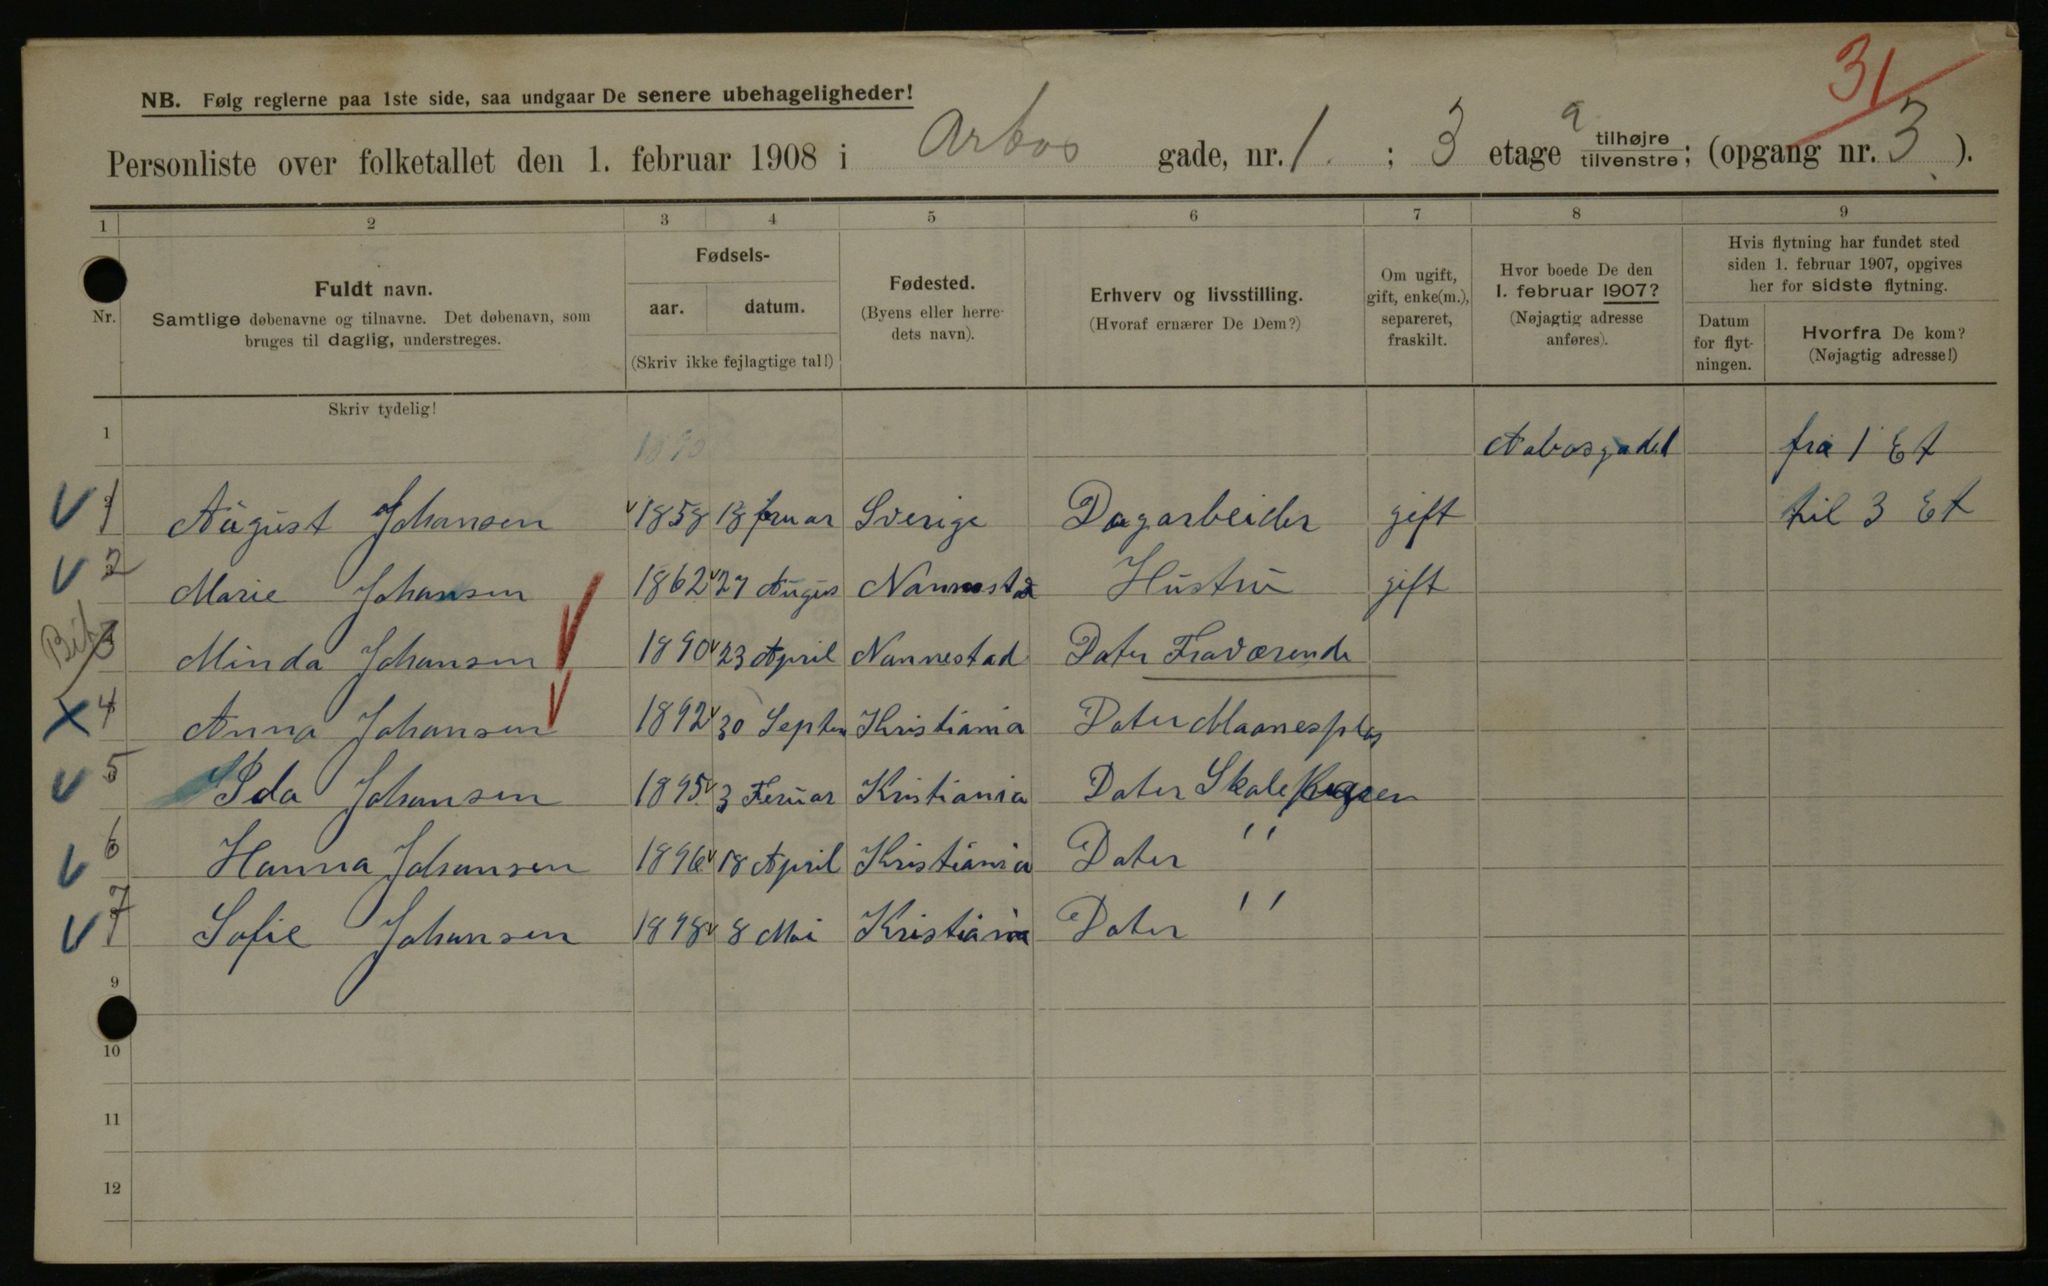 31
NB. Følg reglerne paa 1ste side, saa undgaar De senere ubehageligheder!
Personliste over folketallet den 1. februar 1908 i Arbos gade, nr. 1. ; 3 etage a tilhøjre tilvenstre; (opgang nr. 3 ).
1 2 3 4 5 6 7 8 9
Nr.
Fuldt navn.
Samtlige døbenavne og tilnavne. Det døbenavn, som
bruges til daglig, understreges.
Fødsels-
aar. datum.
(Skriv ikke fejlagtige tal!)
Fødested.
(Byens eller herre-
dets navn).
Erhverv og livsstilling.
(Hvoraf ernærer De Dem?)
Om ugift,
gift, enke(m.),
separeret,
fraskilt.
Hvor boede De den
1. februar 1907?
(Nøjagtig adresse
anføres).
Hvis flytning har fundet sted
siden 1. februar 1907, opgives
her for sidste flytning.
Datum
for flyt-
ningen.
Hvorfra De kom?
(Nøjagtig adresse!)
Skriv tydelig!
1 1890 Aabosgade 1 fra 1 Et
1 August Johansen 1858 18 fruar Sverige Dagarbeider gift til 3 Et
2 Marie Johansen 1862 27 Augus Nannestad Hustru gift
3 Minda Johansen 1890 23 April Nannestad Dater Fraværende
4 Anna Johansen 1892 30 Septem Kristiania Dater Maanesplas
5 Ida Johansen 1895 3 Feruar Kristiania Dater Skole
6 Hanna Johansen 1896 18 April Kristiania Dater "
7 Sofie Johansen 1898 8 Mai Kristiania Dater "
9
10
11
12